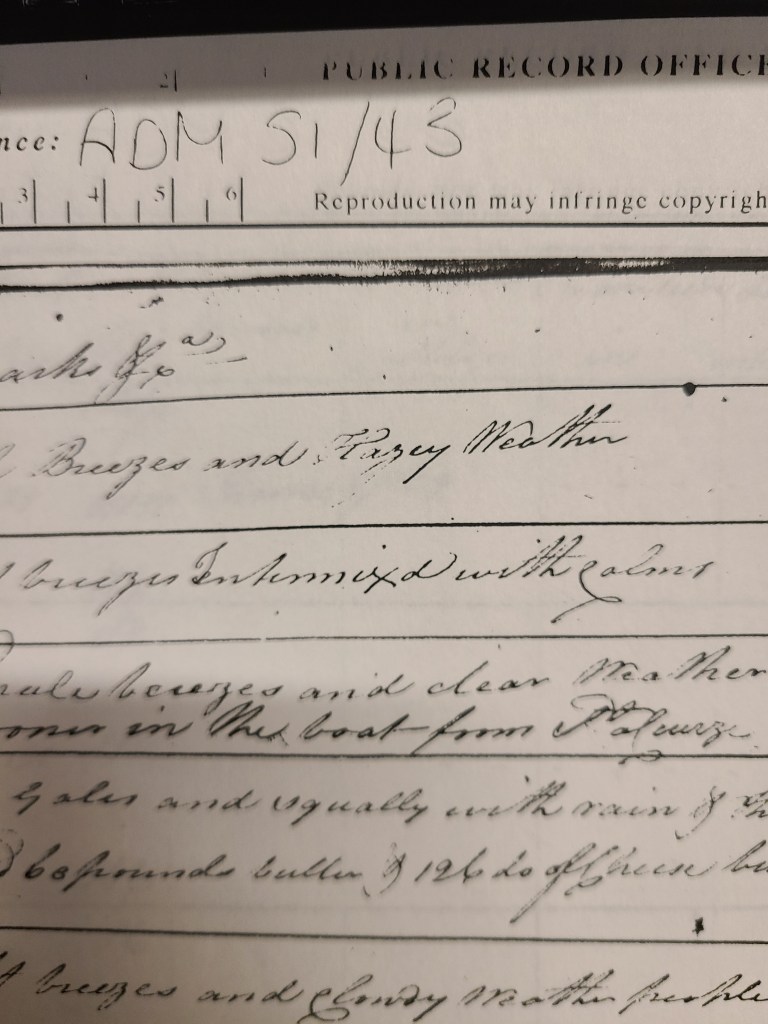 PUBLIC RECORD OFFIC
nce: ADM 51/43
2
3 4 5 6
Reproduction may infringe copyrigh
arks &ca
Breezes and Hazey Weather
breezes Intermixd with Calms
breezes and clear Weather
in the boat from
Gales and squally with rain &
pounds butter & 126 do of Cheese
breezes and Cloudy Weather people